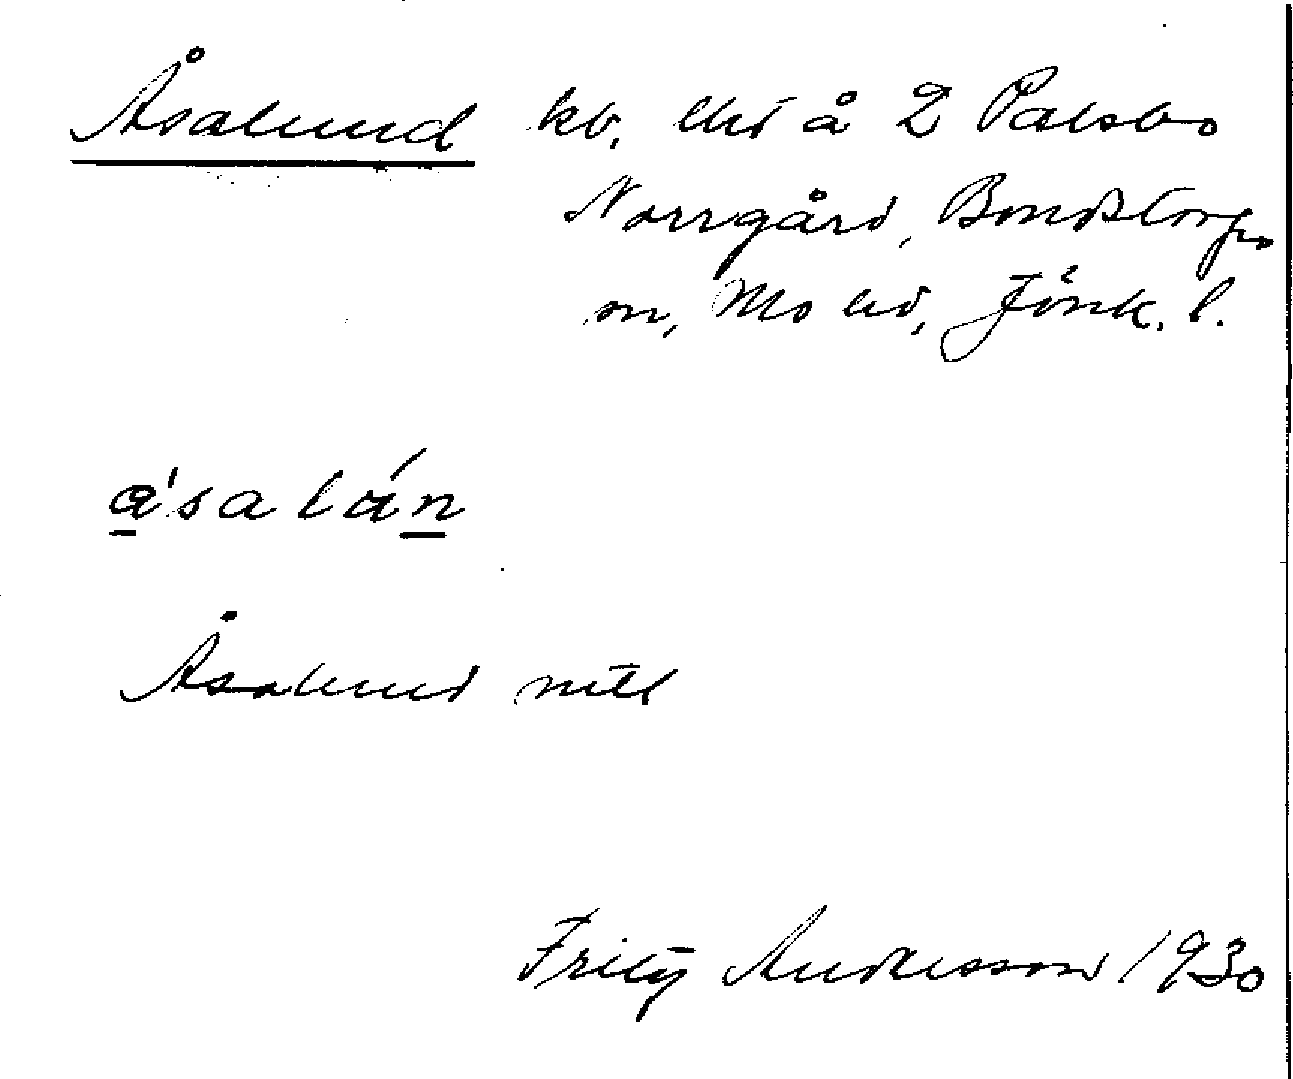 Åsalund kb, und å 2 Palsbo
Norrgård, Bondstorps
sn, Mo hd, Jönk. l.
a'salán
Åsalund mtl
Fritz Andersson 1930